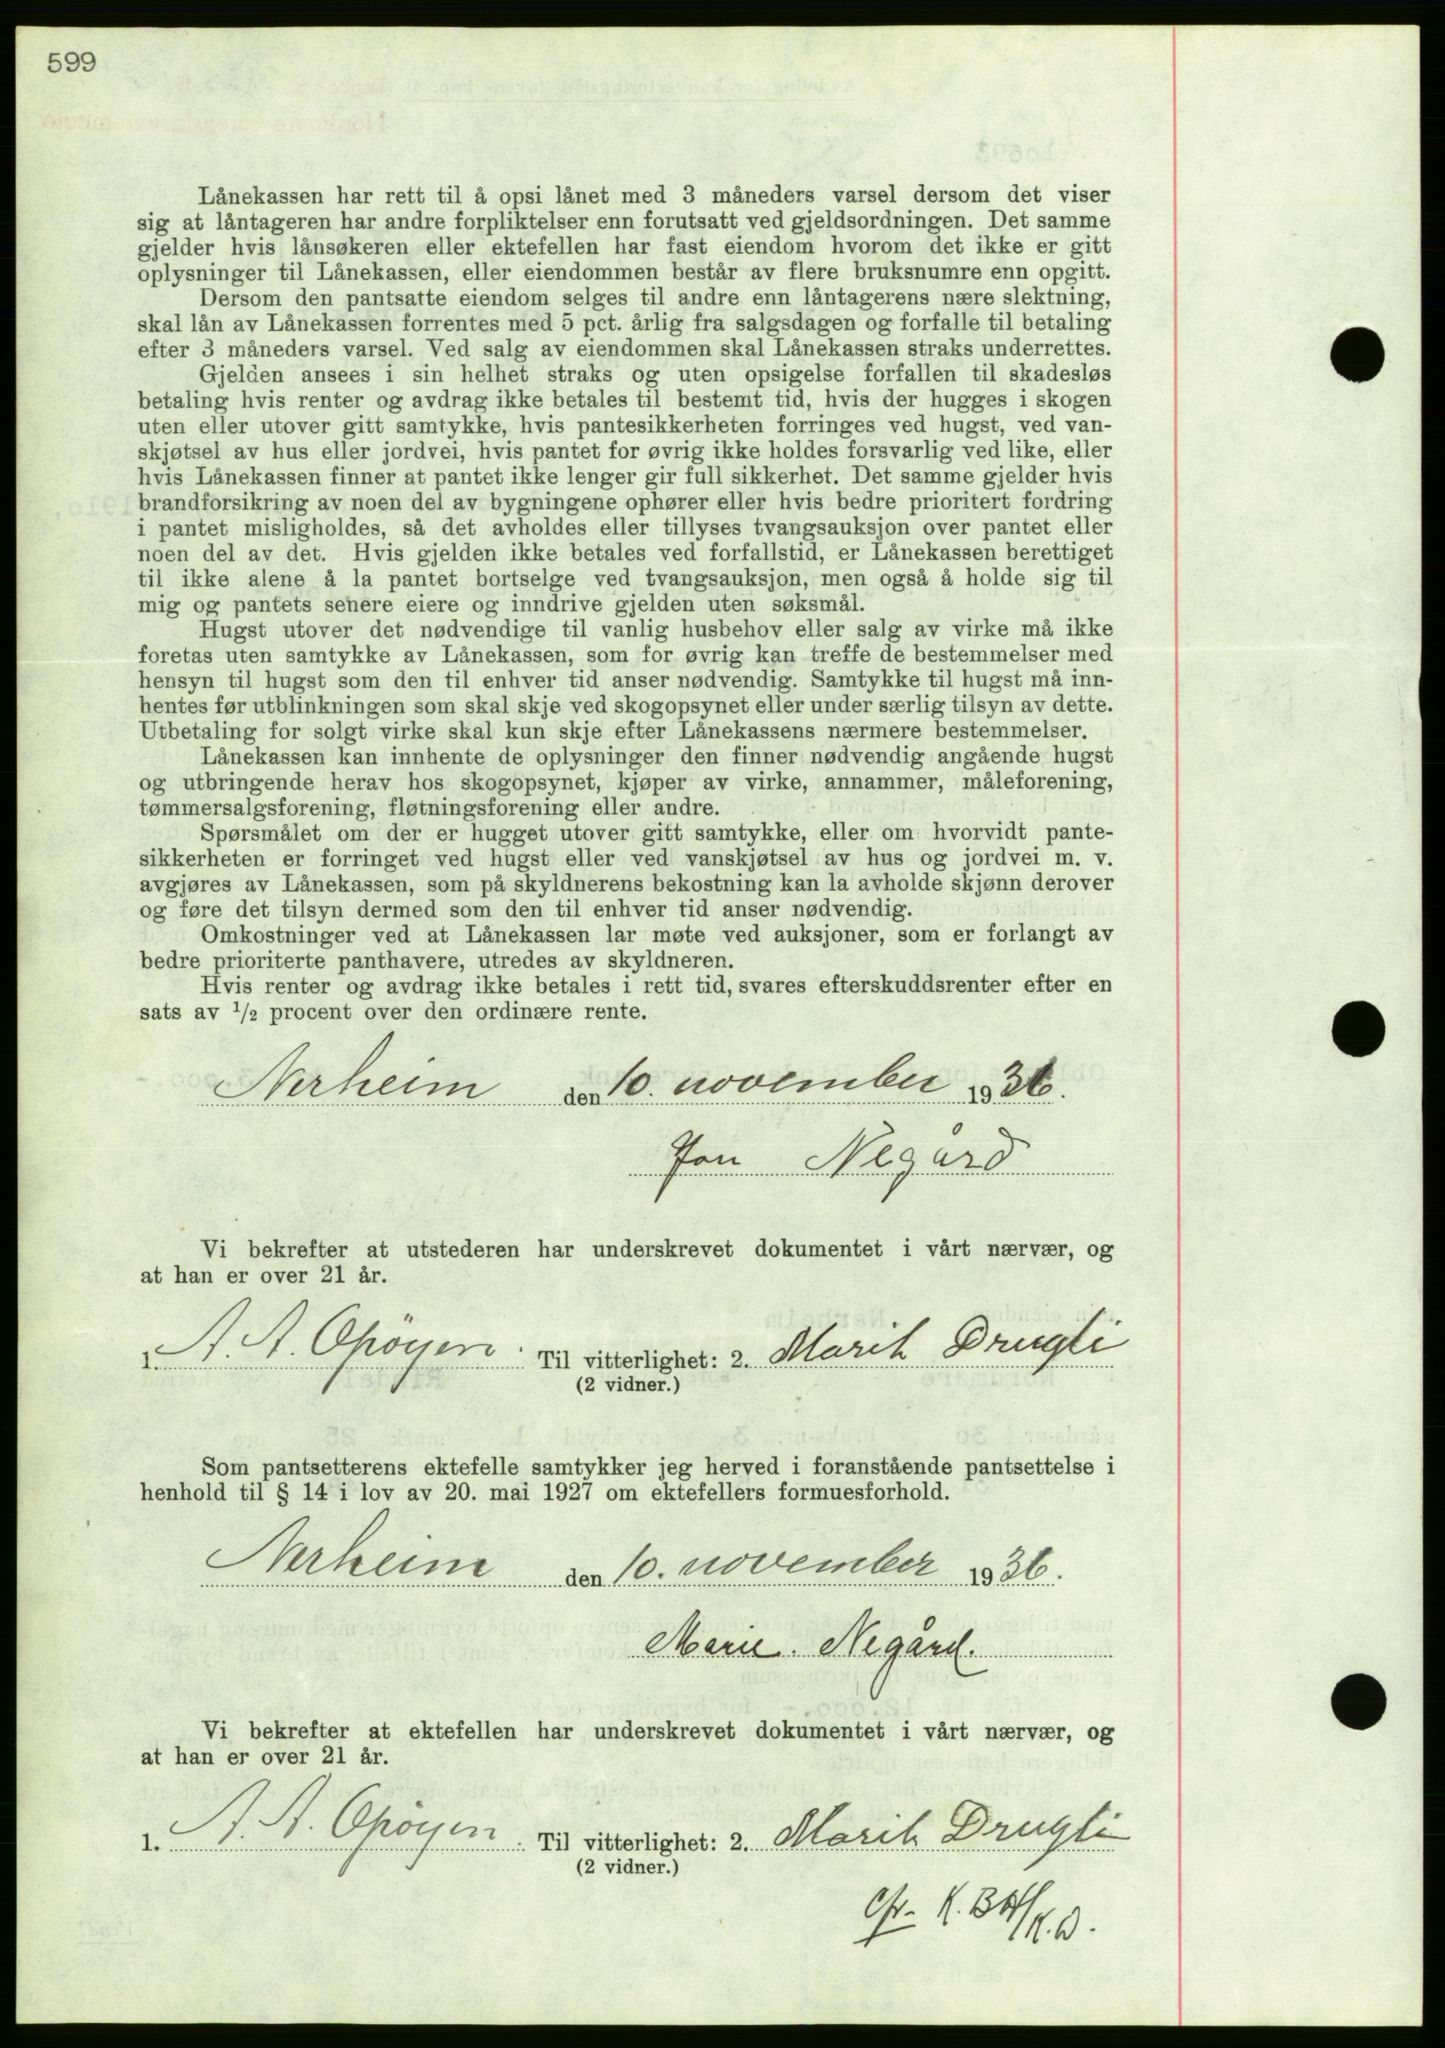 599
Lånekassen har rett til å opsi lånet med 3 måneders varsel dersom det viser
sig at låntageren har andre forpliktelser enn forutsatt ved gjeldsordningen. Det samme
gjelder hvis lånsøkeren eller ektefellen har fast eiendom hvorom det ikke er gitt
oplysninger til Lånekassen, eller eiendommen består av flere bruksnumre enn opgitt.
Dersom den pantsatte eiendom selges til andre enn låntagerens nære slektning,
skal lån av Lånekassen forrentes med 5 pct. årlig fra salgsdagen og forfalle til betaling
efter 3 måneders varsel. Ved salg av eiendommen skal Lånekassen straks underrettes.
Gjelden ansees i sin helhet straks og uten opsigelse forfallen til skadesløs
betaling hvis renter og avdrag ikke betales til bestemt tid, hvis der hugges i skogen
uten eller utover gitt samtykke, hvis pantesikkerheten forringes ved hugst, ved van-
skjøtsel av hus eller jordvei, hvis pantet for øvrig ikke holdes forsvarlig ved like, eller
hvis Lånekassen finner at pantet ikke lenger gir full sikkerhet. Det samme gjelder hvis
brandforsikring av noen del av bygningene ophører eller hvis bedre prioritert fordring
i pantet misligholdes, så det avholdes eller tillyses tvangsauksjon over pantet eller
noen del av det. Hvis gjelden ikke betales ved forfallstid, er Lånekassen berettiget
til ikke alene å la pantet bortselge ved tvangsauksjon, men også å holde sig til
mig og pantets senere eiere og inndrive gjelden uten søksmål.
Hugst utover det nødvendige til vanlig husbehov eller salg av virke må ikke
foretas uten samtykke av Lånekassen, som for øvrig kan treffe de bestemmelser med
hensyn til hugst som den til enhver tid anser nødvendig. Samtykke til hugst må inn-
hentes før utblinkningen som skal skje ved skogopsynet eller under særlig tilsyn av dette.
Utbetaling for solgt virke skal kun skje efter Lånekassens nærmere bestemmelser.
Lånekassen kan innhente de oplysninger den finner nødvendig angående hugst
og utbringende herav hos skogopsynet, kjøper av virke, annammer, måleforening,
tømmersalgsforening, fløtningsforening eller andre.
Spørsmålet om der er hugget utover gitt samtykke, eller om hvorvidt pante-
sikkerheten er forringet ved hugst eller ved vanskjøtsel av hus og jordvei m. v.
avgjøres av Lånekassen, som på skyldnerens bekostning kan la avholde skjønn derover
og føre det tilsyn dermed som den til enhver tid anser nødvendig.
Omkostninger ved at Lånekassen lar møte ved auksjoner, som er forlangt av
bedre prioriterte panthavere, utredes av skyldneren.
Hvis renter og avdrag ikke betales i rett tid, svares efterskuddsrenter efter en
sats av 1/2 procent over den ordinære rente.
Nerheim den 10. november 1936.
Jon Negård
Vi bekrefter at utstederen har underskrevet dokumentet i vårt nærvær, og
at han er over 21 år.
1. A. A. Opøyen. Til vitterlighet: 2. Marit Drugli
(2 vidner.)
Som pantsetterens ektefelle samtykker jeg herved i foranstående pantsettelse i
henhold til § 14 i lov av 20. mai 1927 om ektefellers formuesforhold.
Nerheim den 10. november 1936.
Marie. Negård.
Vi bekrefter at ektefellen har underskrevet dokumentet i vårt nærvær, og
at han er over 21 år.
1. A. A. Opøyen. Til vitterlighet: 2. Marit Drugli
(2 vidner.)
K. D.